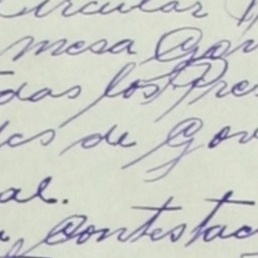 Circular
mesa Gov
das los Pre
les de Gov
al.
Contestac